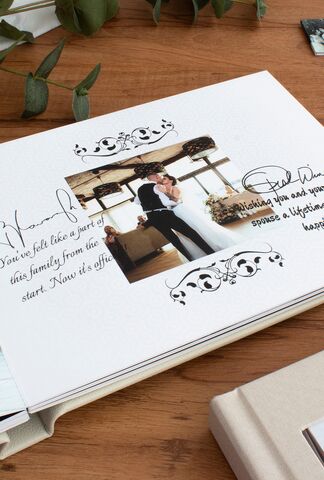 You've felt like a part of
this family from the
start. Now it's offic
Wishing you and your
spouse a lifetime
happi